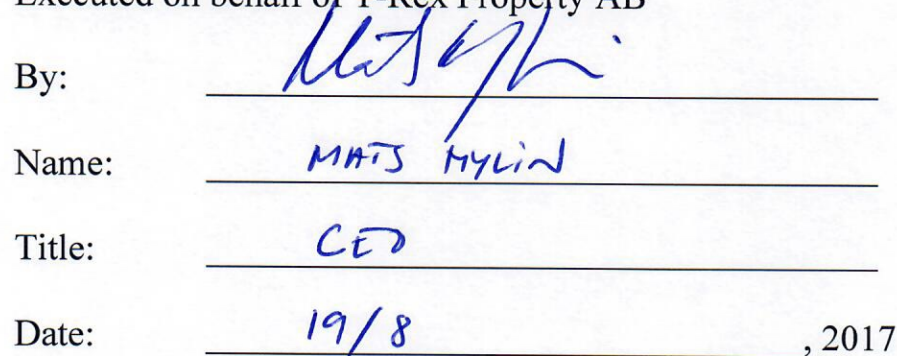 Executed on behalf of T-Rex Property AB
By:
Name: MATS HYLIN
Title: CEO
Date: 19/8 , 2017